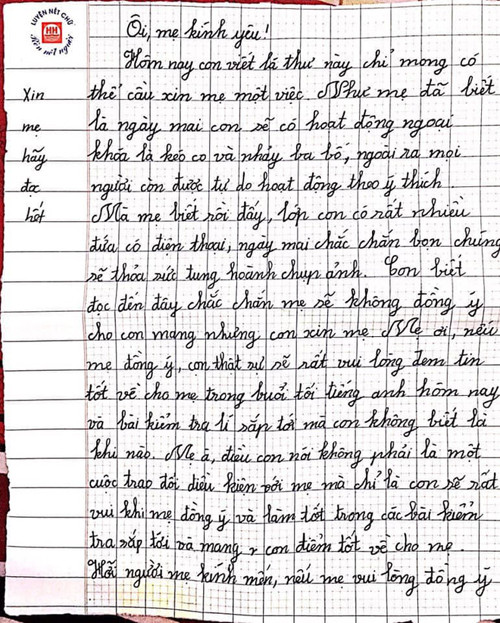 LUYỆN NÉT CHỮ
HH
Rèn nết người
Ôi, mẹ kính yêu!
Hôm nay con viết lá thư này chỉ mong có
thể cầu xin mẹ một việc. Như mẹ đã biết
là ngày mai con sẽ có hoạt động ngoại
khóa là kéo co và nhảy ba bố, ngoài ra mọi
người còn được tự do hoạt động theo ý thích.
Mà mẹ biết rồi đấy, lớp con có rất nhiều
đứa có điện thoại, ngày mai chắc chắn bọn chúng
sẽ thỏa sức tung hoành chụp ảnh. Con biết
đọc đến đây chắc chắn mẹ sẽ không đồng ý
cho con mang nhưng con xin mẹ. Mẹ ơi, nếu
mẹ đồng ý, con thật sự sẽ rất vui lòng đem tin
tốt về cho mẹ trong buổi tối tiếng anh hôm nay
và bài kiểm tra lí sắp tới mà con không biết là
khi nào. Mẹ ă, điều con nói không phải là một
cuộc trao đổi điều kiện với mẹ mà chỉ là con sẽ rất
vui khi mẹ đồng ý và làm tốt trong các bài kiểm
tra sắp tới và mang r con điểm tốt về cho mẹ.
Hỡi người mẹ kính mến, nếu mẹ vui lòng đồng ý
Xin
mẹ
hãy
đọc
hết